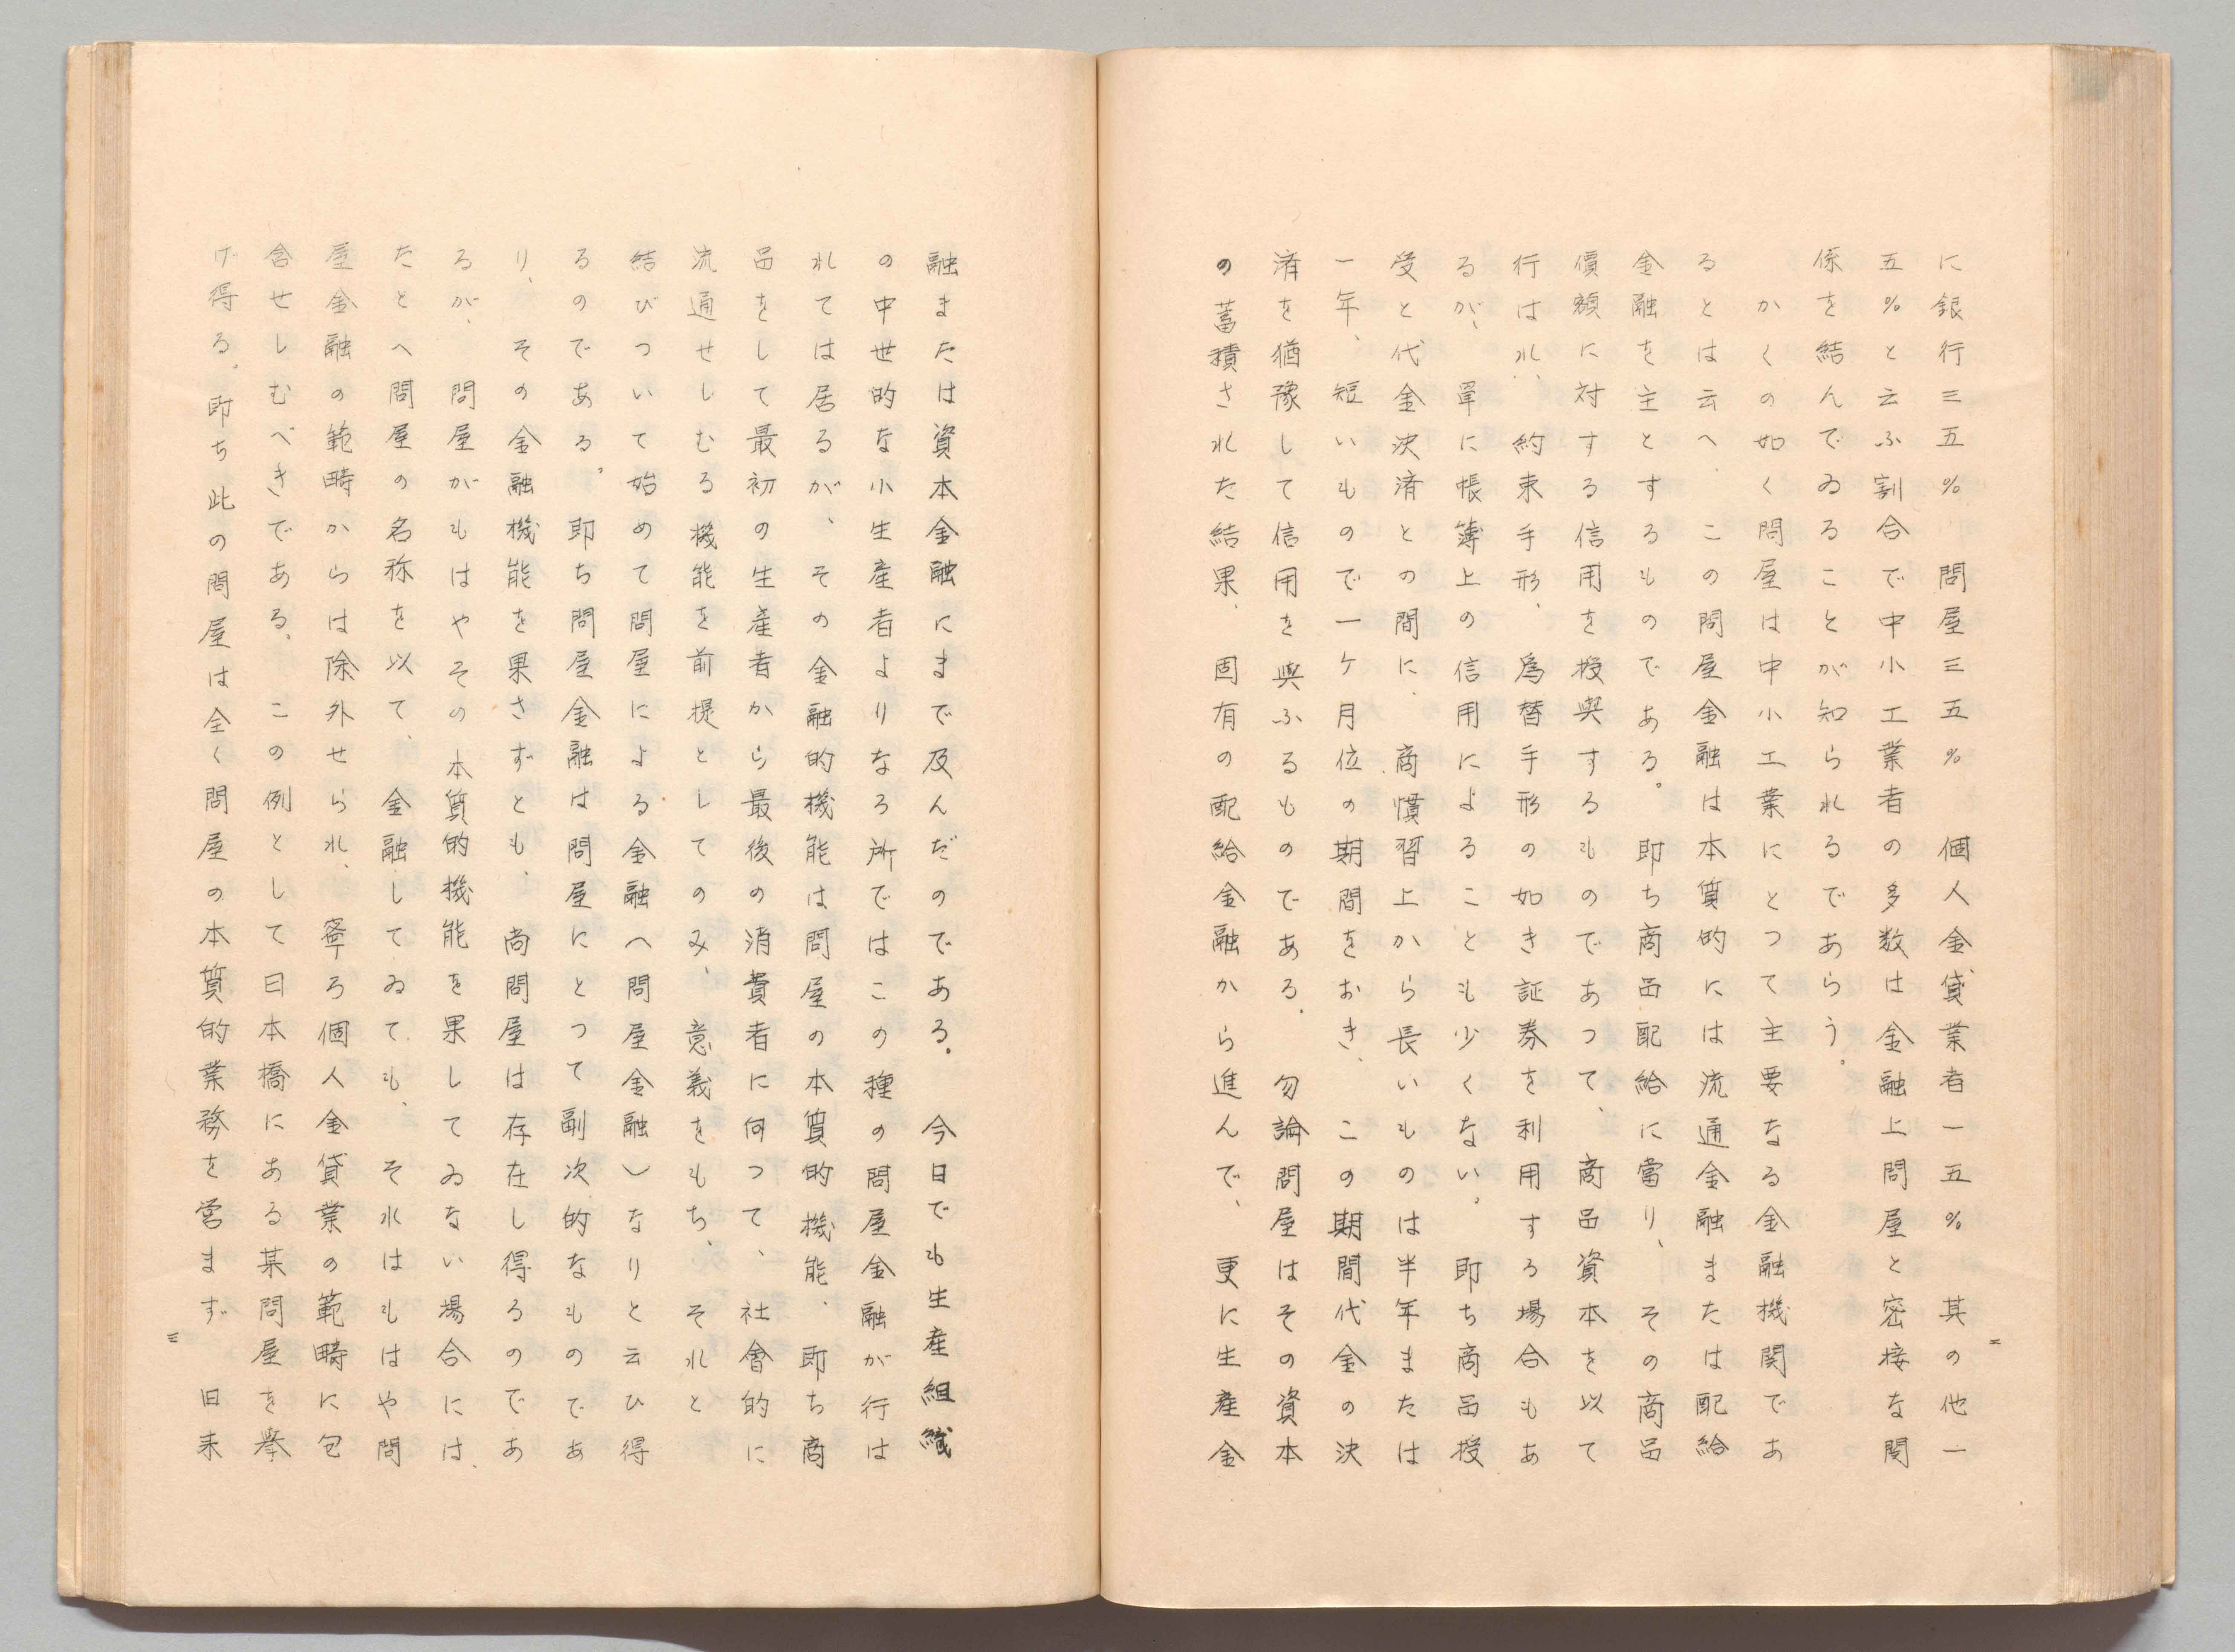 に銀行三五％　問屋三五％　個人金貸業者一五％　其の他一
五％と云ふ割合で中小工業者の多数は金融上問屋と密接な関
係を結んでゐることが知られるであらう。
かくの如く問屋は中小工業にとつて主要なる金融機関であ
るとは云へ、この問屋金融は本質的には流通金融または配給
金融を主とするものである。即ち商品配給に當り、その商品
價額に対する信用を授與するものであつて、商品資本を以て
行はれ、約束手形、爲替手形の如き証券を利用する場合もあ
るが、單に帳簿上の信用によることも少くない。即ち商品授
受と代金決済との間に、商慣習上から長いものは半年または
一年、短いもので一ケ月位の期間をおき、この期間代金の決
済を猶豫して信用を與ふるものである。勿論問屋はその資本
の蓄積された結果、固有の配給金融から進んで、更に生産金
二
融または資本金融にまで及んだのである。今日でも生産組織
の中世的な小生産者よりなる所ではこの種の問屋金融が行は
れては居るが、その金融的機能は問屋の本質的機能、即ち商
品をして最初の生産者から最後の消費者に向つて、社會的に
流通せしむる機能を前提としてのみ、意義をもち、それと
結びついて始めて問屋による金融（問屋金融）なりと云ひ得
るのである。即ち問屋金融は問屋にとつて副次的なものであ
り、その金融機能を果さずとも、尚問屋は存在し得るのであ
るが、問屋がもはやその本質的機能を果してゐない場合には、
たとへ問屋の名称を以て、金融してゐても、それはもはや問
屋金融の範疇からは除外せられ、寧ろ個人金貸業の範疇に包
含せしむべきである。この例として日本橋にある某問屋を擧
げ得る。即ち此の問屋は全く問屋の本質的業務を営まず　旧来
三